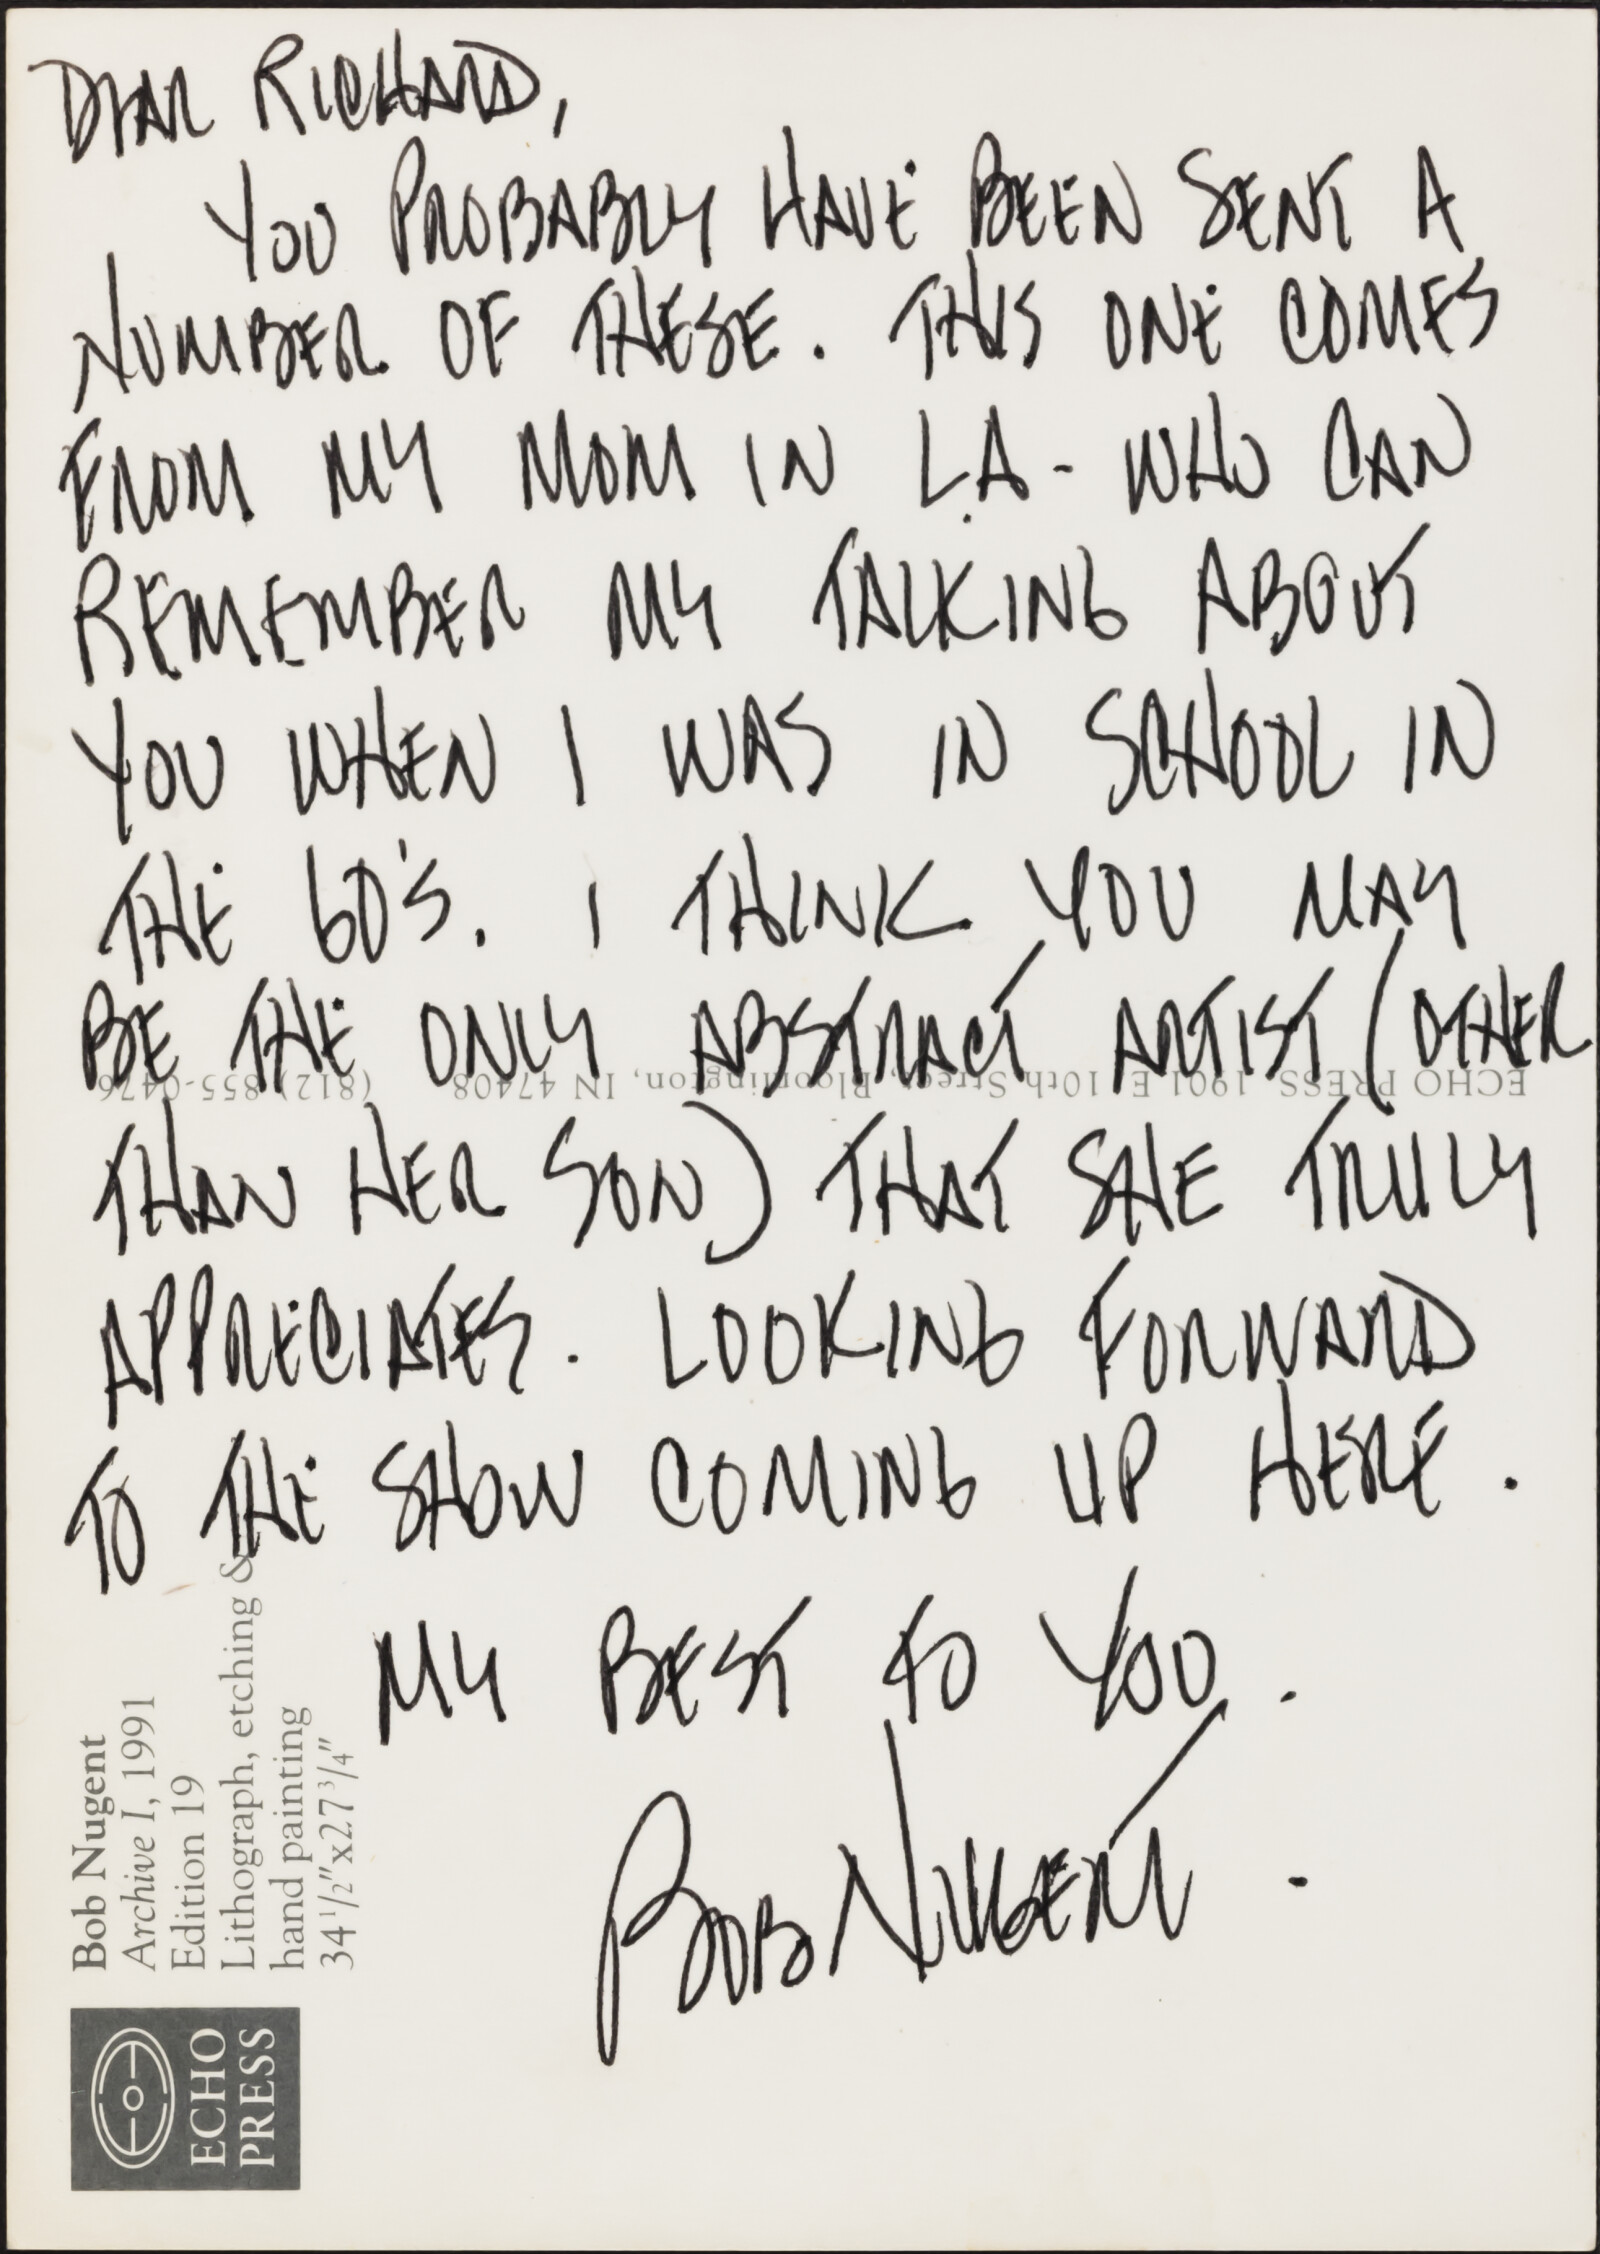 DEAR RICHARD,
YOU PROBABLY HAVE BEEN SENT A
NUMBER OF THESE. THIS ONE COMES
FROM MY MOM IN L.A- WHO CAN
REMEMBER MY TALKING ABOUT
YOU WHEN I WAS IN SCHOOL IN
THE 60'S. I THINK YOU MAY
BE THE ONLY ABSTRACT ARTIST (OTHER
THAN HER SON) THAT SHE TRULY
APPRECIATES. LOOKING FORWARD
TO THE SHOW COMING UP HERE.
MY BEST TO YOU.
BOB NUGENT.
ECHO PRESS 1901 E 10th Street, Bloomington, IN 47408 (812) 855-0476
Bob Nugent
Archive I, 1991
Edition 19
Lithograph, etching &
hand painting
34 1/2"x27 3/4"
ECHO
PRESS